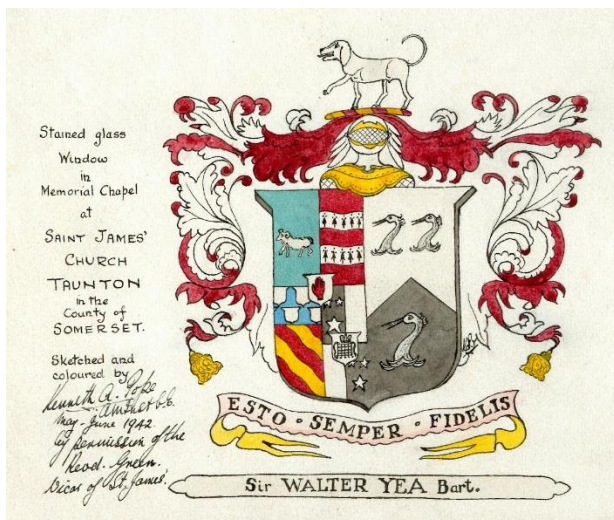 Stained glass
Window
in
Memorial Chapel
at
SAINT JAMES'
CHURCH
TAUNTON
in the
County of
SOMERSET.
Sketched and
coloured by
Kenneth A. Pope
May-June 1942
by permission of the
Revd. Green.
Vicar of St. James'
ESTO · SEMPER · FIDELIS
Sir WALTER YEA Bart.